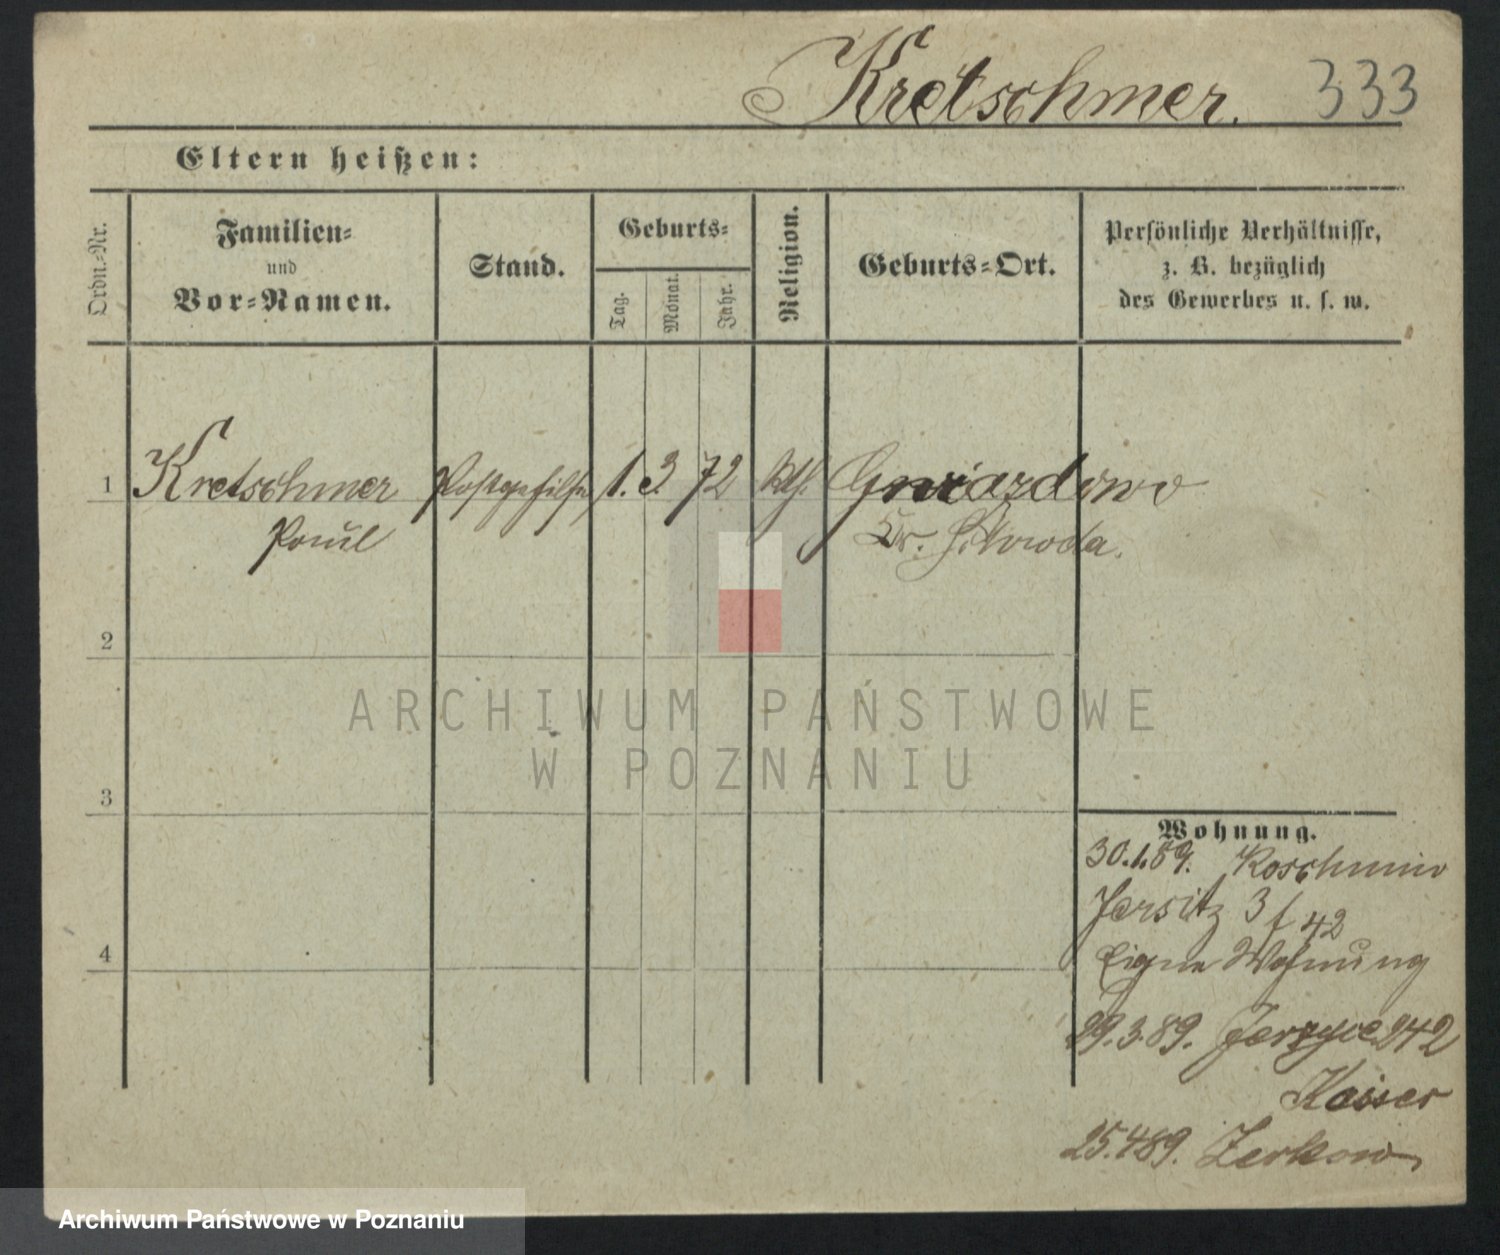 Kretschmer. 333
Eltern heißen:
Ordn.-Nr.
Familien-
und
Vor-Namen.
Stand.
Geburts-
Tag.
Monat.
Jahr.
Religion.
Geburts-Ort.
Persönliche Verhältnisse,
z. B. bezüglich
des Gewerbes u. s. w.
1 Kretschmer Postgehilfe 1. 3. 72 kth. Gwiazdowo
Paul Kr. Schroda.
2
3
4
Wohnung.
30.1.89. Koschmin
Jersitz 3 f 42
Eigne Wohnung
29.3.89. Jerzyce 242
Kaiser
25.4 89. Zerkow
ARCHIWUM PAŃSTWOWE
W POZNANIU
Archiwum Państwowe w Poznaniu